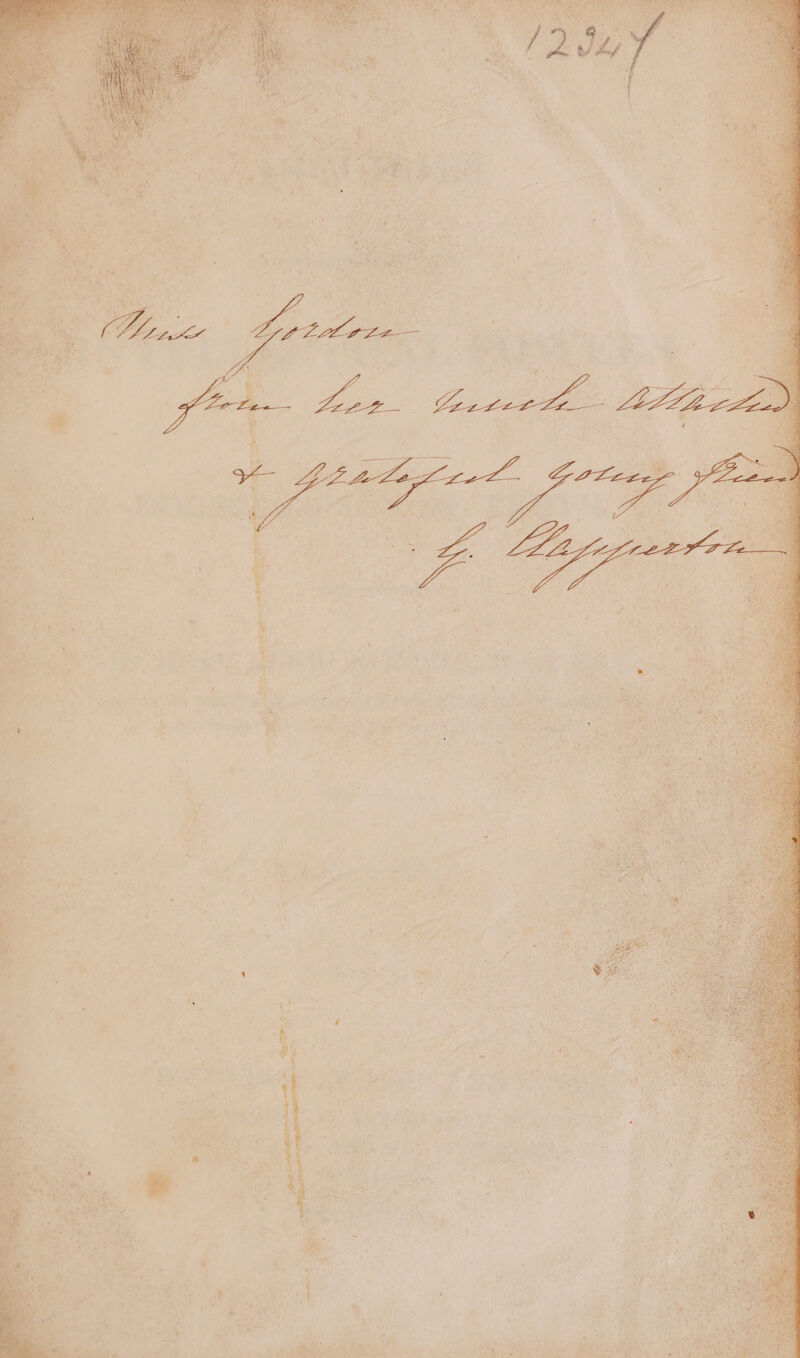 Miss Gordon
from her much attached
& grateful young friend
G. Clapperton